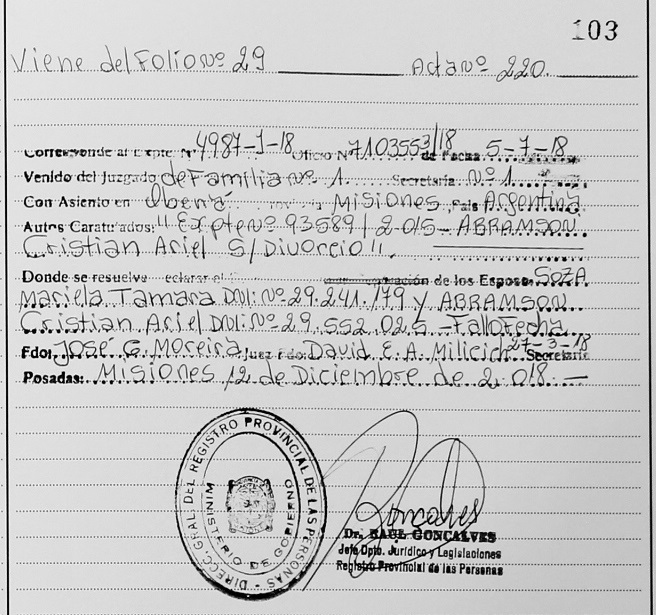 103
Viene del Folio nº 29 Acta nº 220.
Corresponde al Expte. Nº 4987-J-18 Oficio Nº 7103553/18 de Fecha 5-7-18
Venido del Juzgado de Familia nº 1 Secretaría Nº 1
Con Asiento en Oberá Misiones, Pais Argentina
Autos Caratulados: "Expte nº 93589/2.015- ABRAMSON
Cristian Ariel S/Divorcio".
Donde se resuelve de los Esposos SOZA
Mariela Tamara DNI: Nº 29.241.179 y ABRAMSON
Cristian Ariel DNI: Nº 29.552.025 - Fallo Fecha
27-3-18
Fdo: José G. Moreira Juez Fdo: David E. A. Milicich Secretario
Posadas: Misiones 12 de Diciembre de 2.018. —
DIRECC. GRAL. DEL REGISTRO PROVINCIAL DE LAS PERSONAS -
MINISTERIO DE GOBIERNO
Goncalves
Dr. RAUL GONCALVES
Jefe Dpto. Jurídico y Legislaciones
Registro Provincial de las Personas